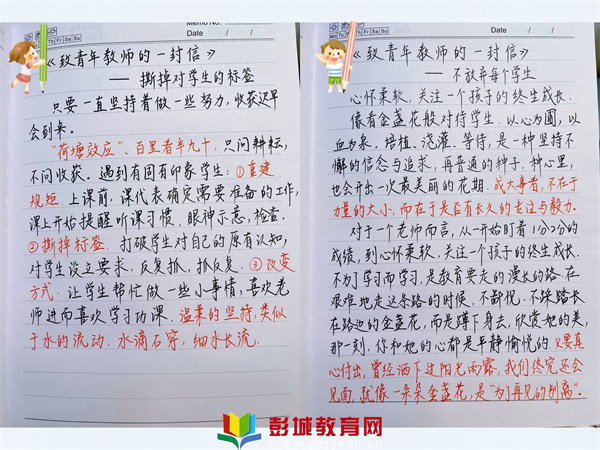 Memo No.
Date / /
Th Fr Sa Su
《致青年教师的一封信》
—— 撕掉对学生的标签
只要一直坚持着做一些努力,收获迟早
会到来。
"荷塘效应"、百里者半九十,只问耕耘,
不问收获。遇到有固有印象学生:①重建
规矩.上课前,课代表确定需要准备的工作,
课上开始提醒听课习惯、眼神示意,检查.
②撕掉标签.打破学生对自己的原有认知,
对学生设立要求、反复抓,抓反复.③改变
方式.让学生帮忙做一些小事情,喜欢老
师进而喜欢学习功课.温柔的坚持,类似
于水的流动.水滴石穿,细水长流.
Date / /
Fr Sa Su
《致青年教师的一封信》
—— 不放弃每个学生
心怀柔软,关注一个孩子的终生成长.
像看金盏花般对待学生.以心为圃,以
血为泉、培植、浇灌、等待,是一种坚持不
懈的信念与追求,再普通的种子,种心里,
也会开出一次最美丽的花期.成大事者,不在于
力量的大小,而在于是否有长久的专注与毅力.
对于一个老师而言,从一开始盯着1分2分的
成绩,到心怀柔软,关注一个孩子的终生成长.
不为了学习而学习,是教育要走的漫长的路.在
艰难地走这条路的时候,不鄙悦.不踩踏长
在路边的金盏花,而是蹲下身去,欣赏她的美,
那一刻,你和她的心都是平静愉悦的.只要真
心付出,曾经洒下过阳光雨露,我们终究还会
见面,就像一朵朵金盏花,是"为了再见的别离".
彭城教育网